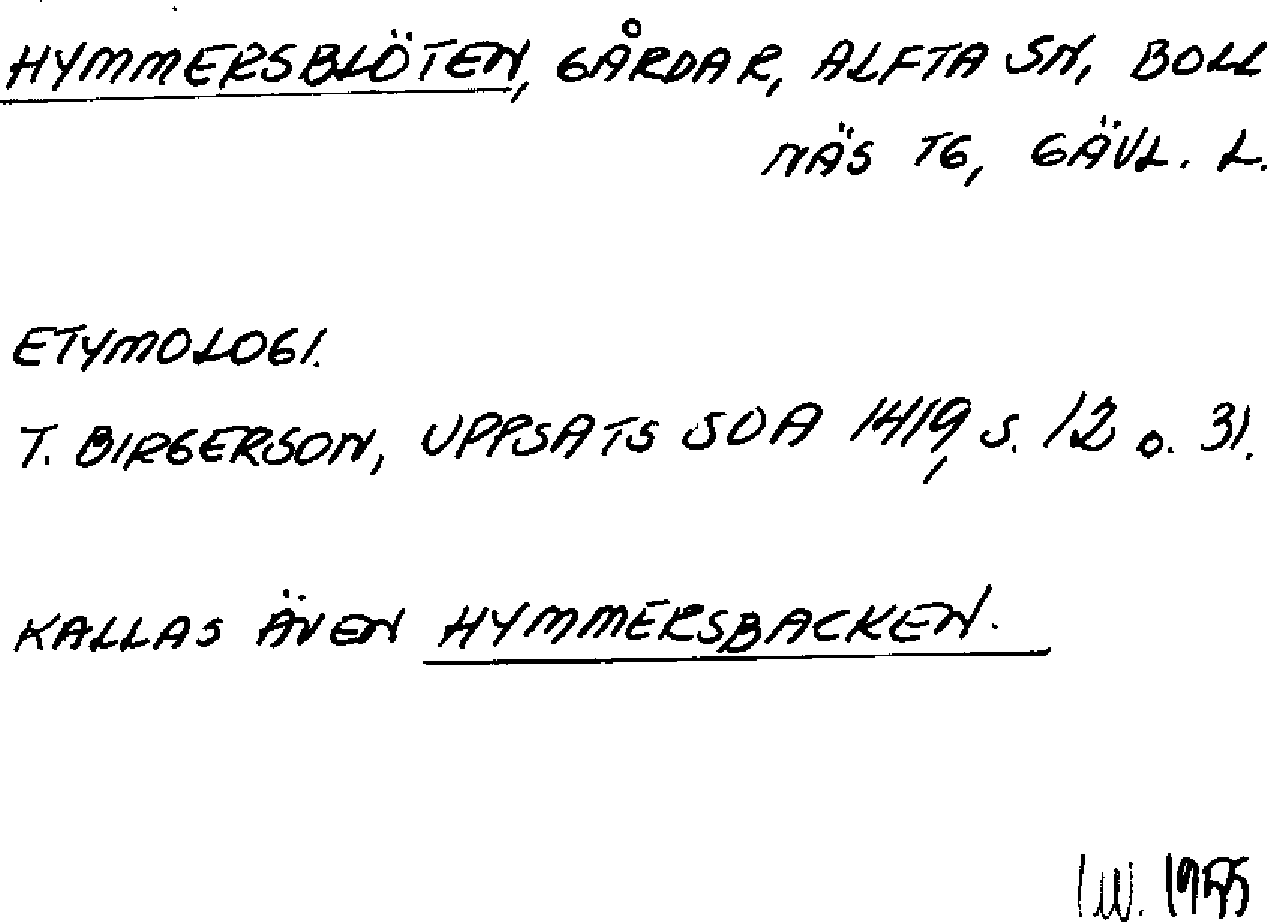 HYMMERSBLÖTEN, GÅRDAR, ALFTA SN, BOLL
NÄS TG, GÄVL. L.
ETYMOLOGI.
T. BIRGERSON, UPPSATS SOA 1419, S. 12 o. 31.
KALLAS ÄVEN HYMMERSBACKEN.
1955